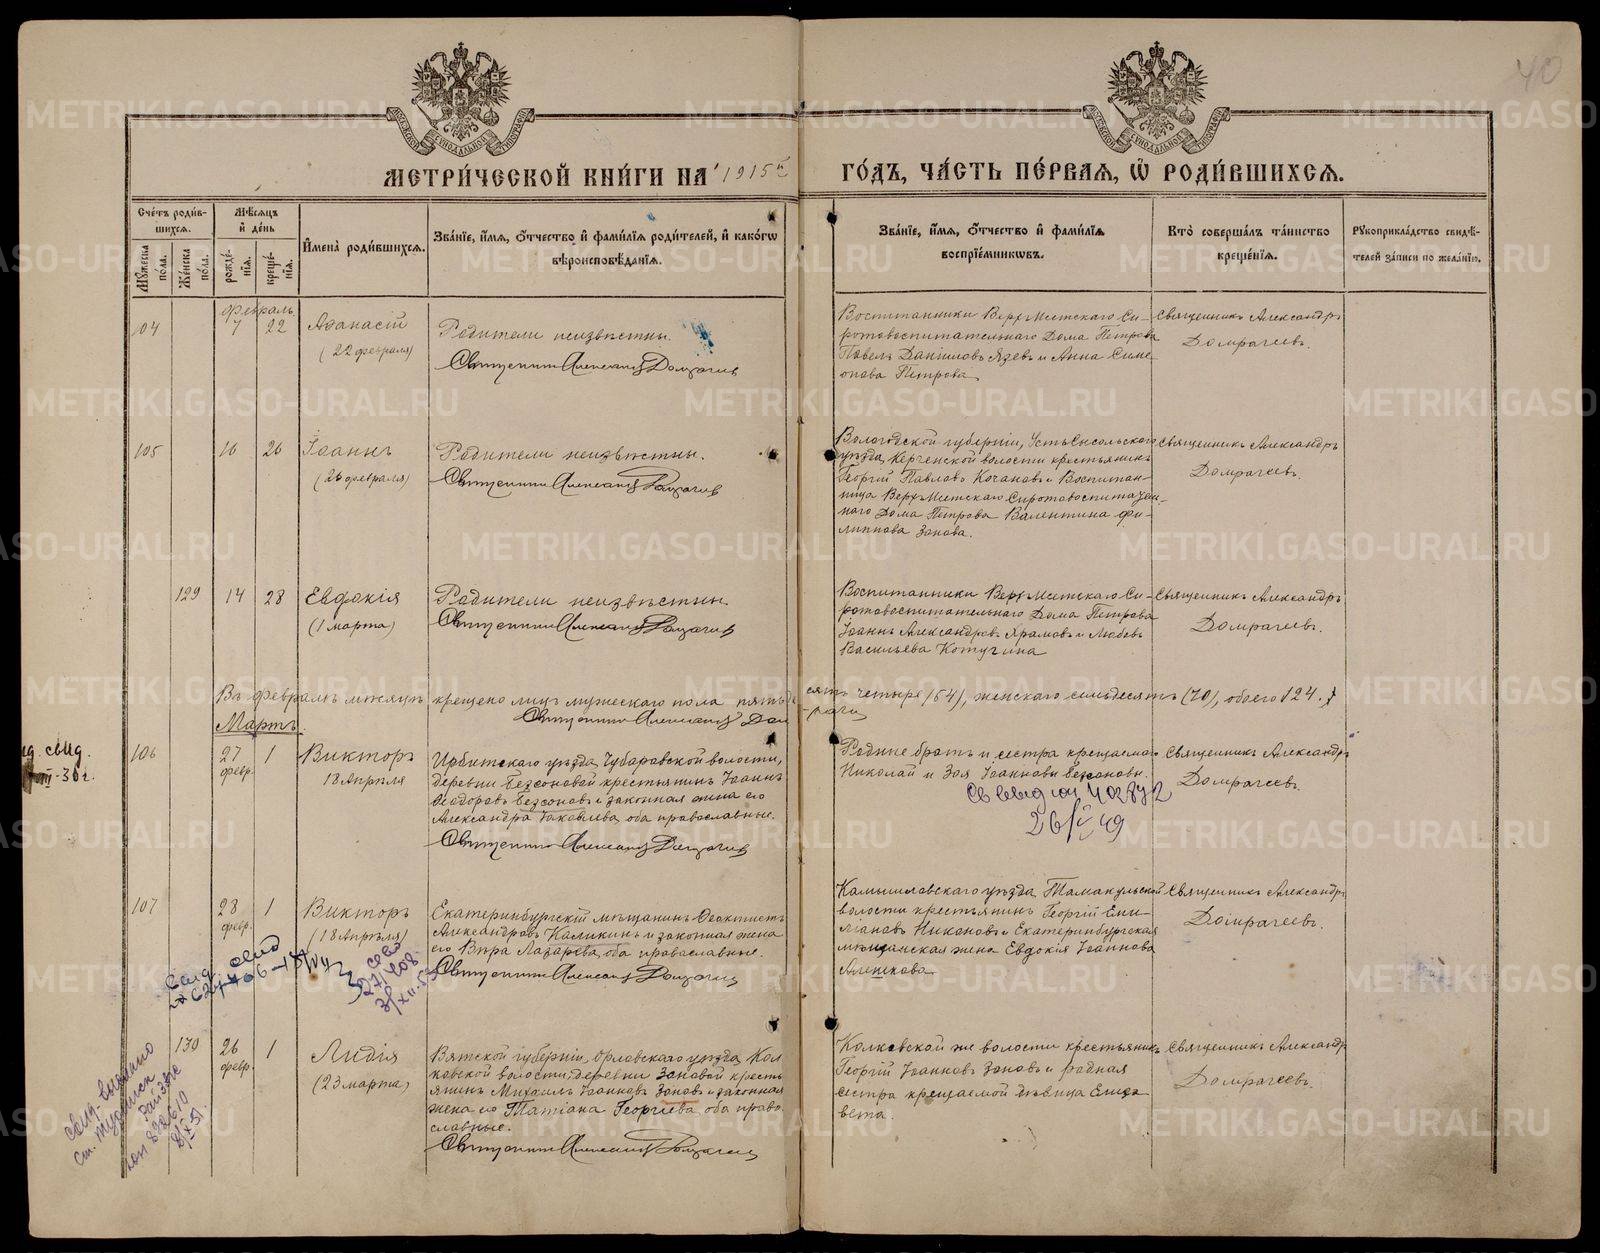 40
МЕТРИ́ЧЕСКОЙ КНИ́ГИ НА 1915 й
ГО́ДЪ, ЧА́СТЬ ПЕ́РВАЯ, Ѡ РОДИ́ВШИХСЯ.
Сче́тъ роди́в-
шихся.
Му́жеска по́ла.
Же́нска по́ла.
Мѣ́сяцъ и де́нь
рожде́-
нія.
креще́-
нія.
Имена̀ роди́вшихся.
Зва́ніе, и́мя, о́тчество и фами́лія роди́телей, и како́гѡ
вѣроисповѣ́данія.
Зва́ніе, и́мя, о́тчество и фами́лія
воспріе́мниковъ.
Кто̀ соверша́лъ та́инство
креще́нія.
Рукоприкла́дство свидѣ́-
телей за́писи по жела́нію.
Февраль
104 7 22 Аѳанасій
(22 февраля)
Родители неизвѣстны.
Священникъ Александръ Домрачевъ
Воспитанники Верх-Исетскаго Си-
ротовоспитательнаго Дома Петрова
Павелъ Даніиловъ Язевъ и Анна Симе-
онова Петрова
Священникъ Александръ
Домрачеевъ.
105 16 26 Іоаннъ
(26 февраля)
Родители неизвѣстны.
Священникъ Александръ Домрачевъ
Вологодской губерніи, Усть-Сысольскаго
уѣзда, Керченской волости крестьянинъ
Георгій Павловъ Кочановъ и Воспитан-
ница Верх-Исетскаго Сиротовоспитатель-
наго Дома Петрова Валентина Фи-
липпова Зонова.
Священникъ Александръ
Домрачеевъ.
129 14 28 Евдокія
(1 марта)
Родители неизвѣстны.
Священникъ Александръ Домрачевъ
Воспитанники Верх-Исетскаго Си-
ротовоспитательнаго Дома Петрова
Іоаннъ Александровъ Храмовъ и Любовь
Васильева Котугина
Священникъ Александръ
Домрачеевъ.
Въ февралѣ мѣсяцѣ крещено лицъ мужескаго пола пятьдесятъ четыре (54), женскаго семьдесятъ (70), обоего 124.
Священникъ Александръ Домрачевъ
Мартъ.
свид.
106 27 февр. 1 Викторъ
18 Апрѣля
Ирбитскаго уѣзда, Чубаровской волости,
деревни Безсоновой крестьянинъ Іоаннъ
Ѳеодоровъ Безсоновъ и законная жена его
Александра Іаковлева, оба православные.
Священникъ Александръ Домрачевъ
Родные братъ и сестра крещаемаго
Николай и Зоя Іоанновы Безсоновы.
Священникъ Александръ
Домрачеевъ.
107 28 февр. 1 Викторъ
(18 Апрѣля)
Екатеринбургскій мѣщанинъ Ѳеоктистъ
Александровъ Каликинъ и законная жена
его Вѣра Лазарева, оба православные.
Священникъ Александръ Домрачевъ
Камышловскаго уѣзда, Тамакульской
волости крестьянинъ Георгій Еми-
ліановъ Никоновъ и Екатеринбургская
мѣщанская жена Евдокія Іоаннова
Алешкова.
Священникъ Александръ
Домрачеевъ.
130 26 февр. 1 Лидія
(23 марта)
Вятской губерніи, Орловскаго уѣзда, Кол-
ковской волости, деревни Зоновой кресть-
янинъ Михаилъ Іоанновъ Зоновъ и законная
жена его Татіана Георгіева, оба право-
славные.
Священникъ Александръ Домрачевъ
Колковской же волости крестьянинъ
Георгій Іоанновъ Зоновъ и родная
сестра крещаемой дѣвица Елиза-
вета.
Священникъ Александръ
Домрачеевъ.
METRIKI.GASO-URAL.RU